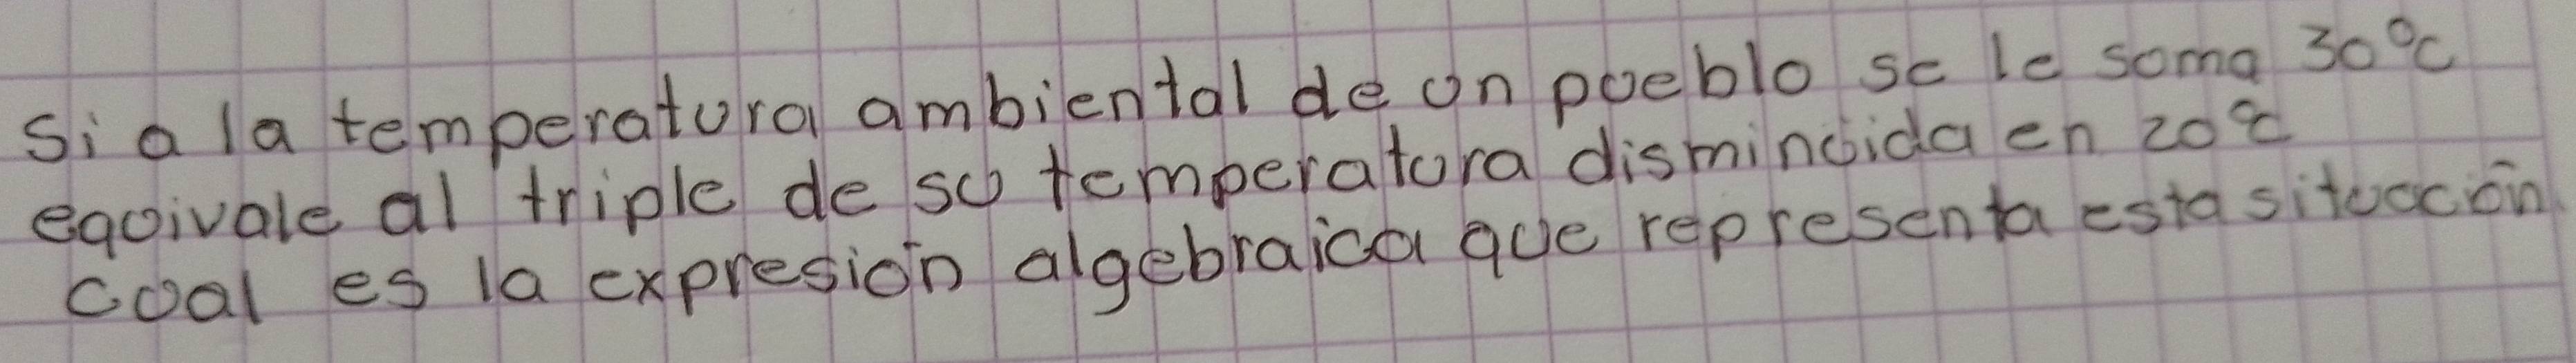 Si a la temperatura ambiental de un pueblo se le suma 30°C
equivale al triple de su temperatura disminuida en 20°C
cual es la expresión algebraica que representa esta situacción